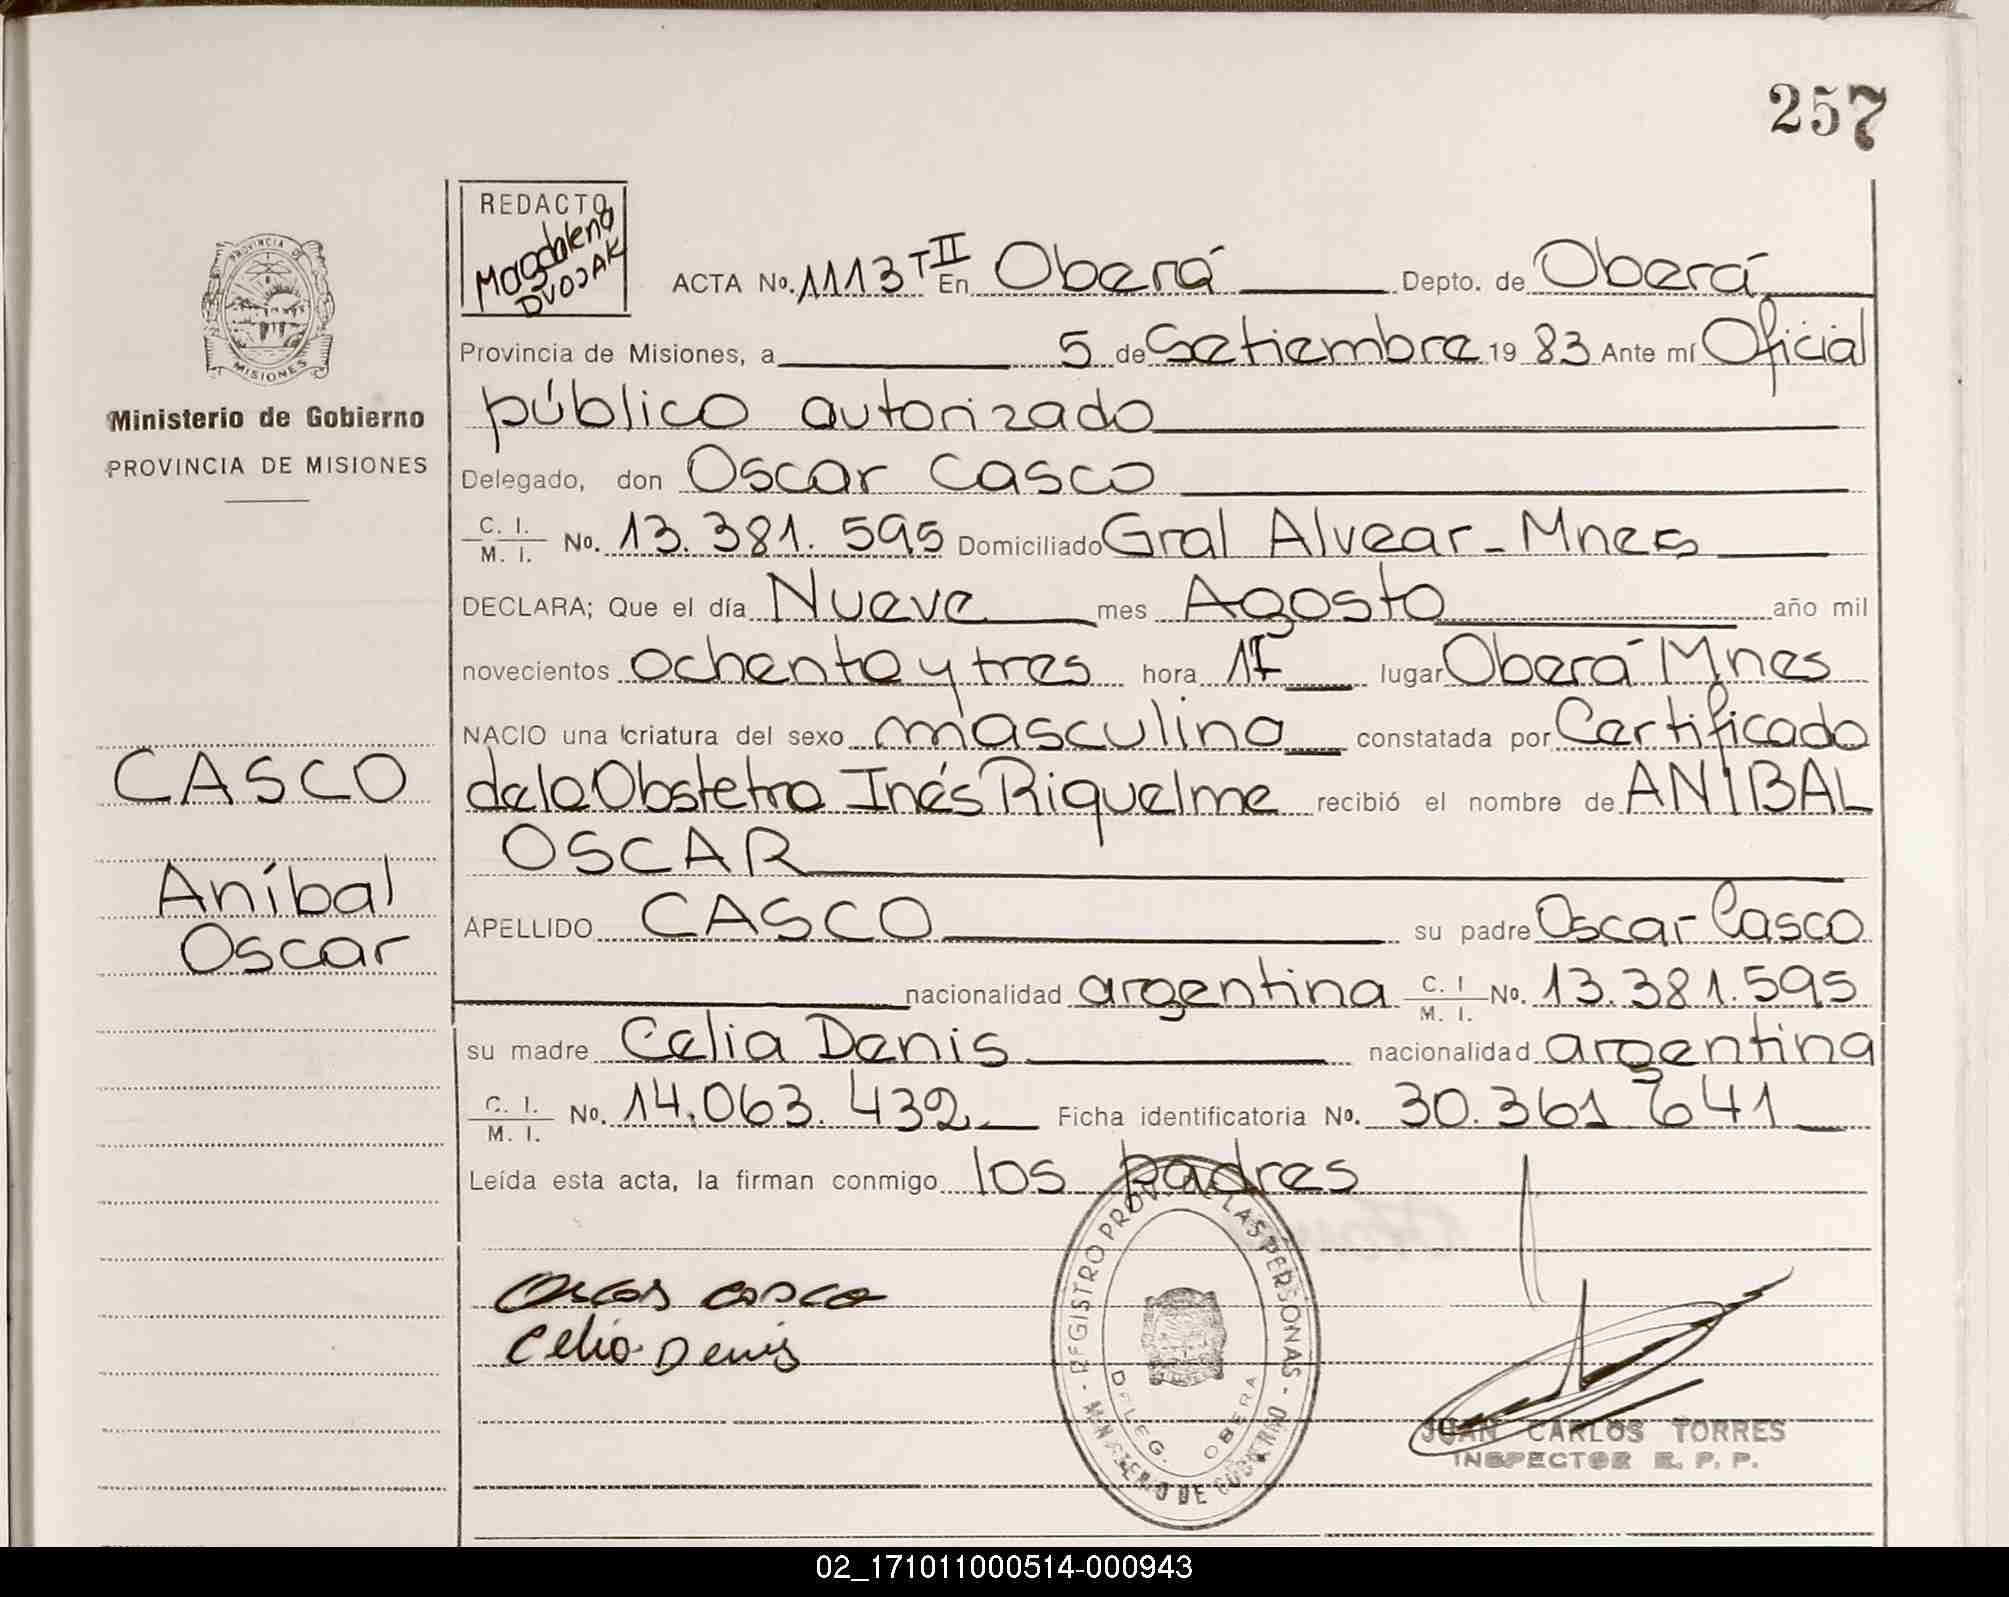 257
REDACTO
Magdalena
DVOJAK
PROVINCIA DE
MISIONES
Ministerio de Gobierno
PROVINCIA DE MISIONES
CASCO
Aníbal
Oscar
ACTA No. 1113 T II En Oberá Depto. de Oberá
Provincia de Misiones, a 5 de Setiembre 19 83 Ante mí Oficial
público autorizado
Delegado, don Oscar Casco
C. I. / M. I. No. 13.381.595 Domiciliado Gral Alvear - Mnes
DECLARA; Que el día Nueve mes Agosto año mil
novecientos ochenta y tres hora 17 lugar Oberá Mnes
NACIO una criatura del sexo masculino constatada por Certificado
de la Obstetra Inés Riquelme recibió el nombre de ANIBAL
OSCAR
APELLIDO CASCO su padre Oscar Casco
nacionalidad argentina C. I / M. I. No. 13.381.595
su madre Celia Denis nacionalidad argentina
C. I. / M. I. No. 14.063.432 Ficha identificatoria No. 30.361 641
Leída esta acta, la firman conmigo los padres
Oscar Casco
Celia Denis
REGISTRO PROV. DE LAS PERSONAS - MINISTERIO DE GOBIERNO -
DELEG. OBERA
JUAN CARLOS TORRES
INSPECTOR R. P. P.
02_171011000514-000943